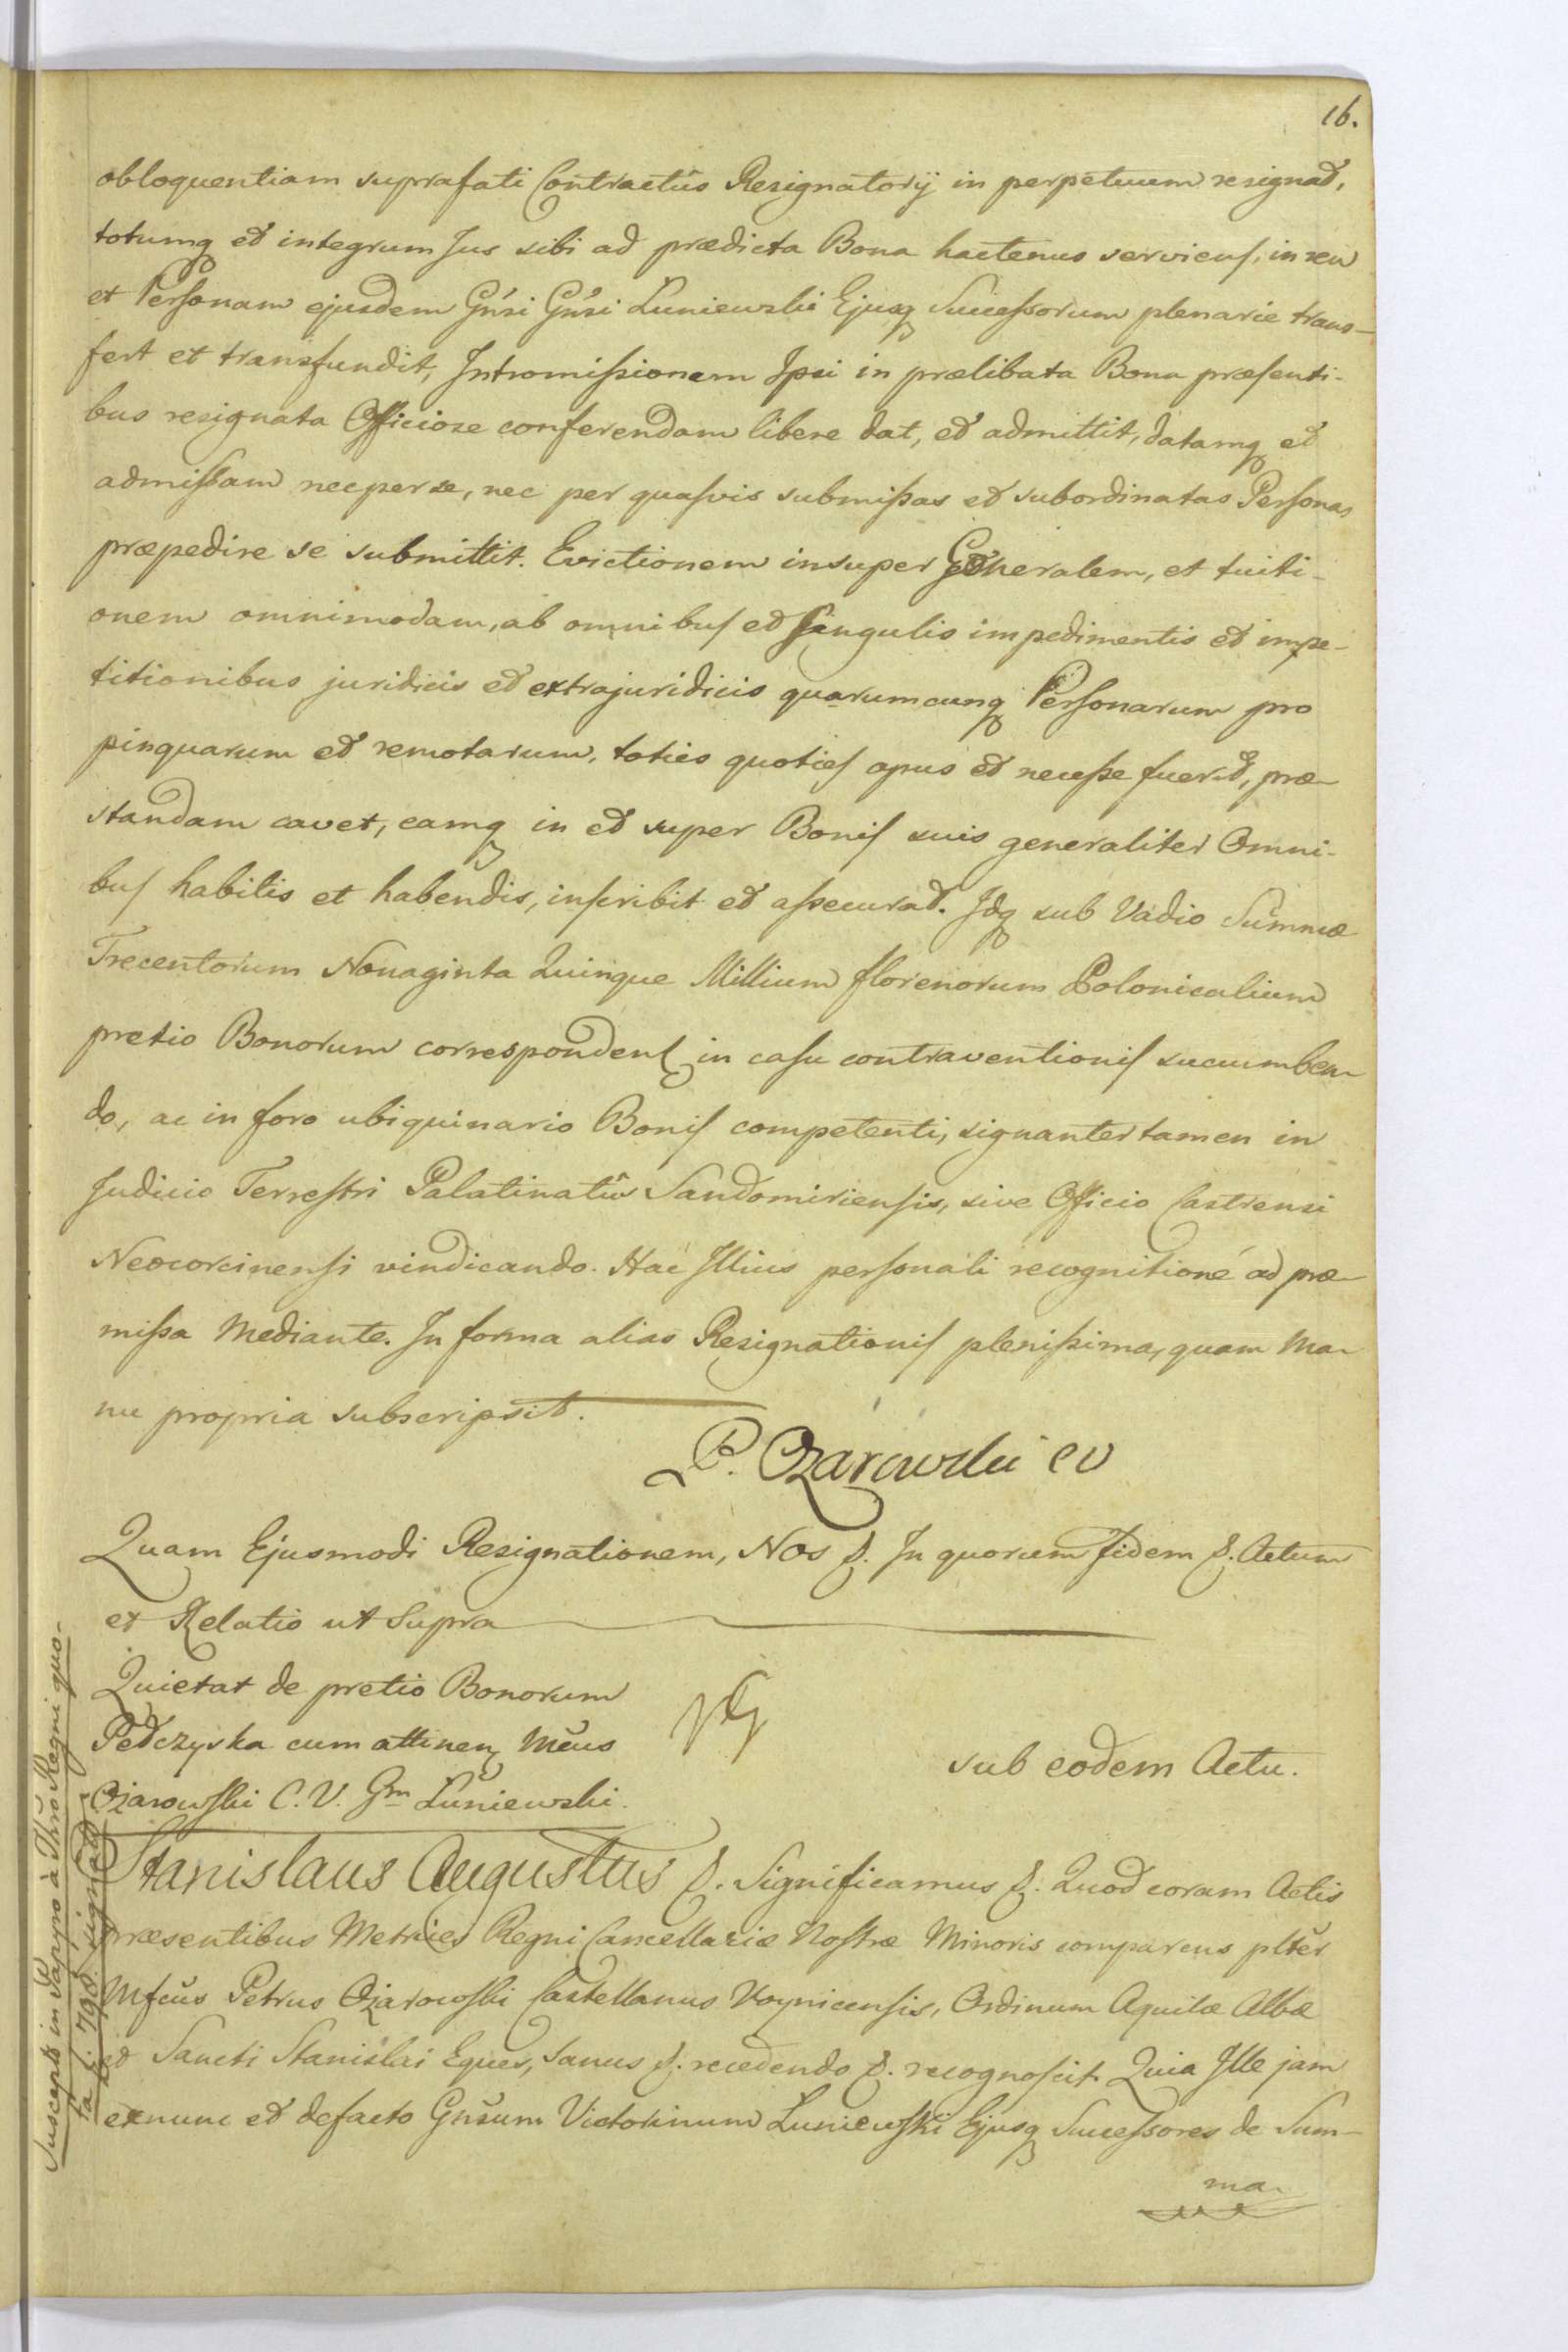 16.
obloquentiam suprafati Contractûs Resignatorÿ in perpetuum resignat,
totumq et integrum Jus sibi ad prædicta Bona hactenus serviens, in rem
et Personam ejusdem Gnsi Gnsi Luniewski Ejusq Successorum plenarie trans-
fert et transfundit, Intromissionem Ipsi in prælibata Bona præsenti-
bus resignata Officiose conferendam libere dat, et admittit, datamq et
admissam nec per se, nec per quasvis submissas et subordinatas Personas
præpedire se submittit. Evictionem insuper Generalem, et tuiti-
onem omnimodam, ab omnibus et Singulis impedimentis et impe-
titionibus juridicis et extrajuridicis quarumcunq Personarum pro
pinquarum et remotarum, toties quoties opus et necesse fuerit, præ-
standam cavet, eamq in et super Bonis suis generaliter Omni-
bus habitis et habendis, inscribit et assecurat. Idq sub Vadio Summæ
Trecentorum Nonaginta Quinque Millium florenorum Polonicalium
pretio Bonorum correspondent in casu contraventionis succumben-
do, ac in foro ubiquinario Bonis competenti, signanter tamen in
Judicio Terrestri Palatinatûs Sandomiriensis, sive Officio Castrensi
Neocorcinensi vindicando. Hac Illius personali recognitione ad præ-
missa Mediante. In forma alias Resignationis plenissima, quam Ma-
nu propria subscripsit.
P. Ożarowski CV
Quam Ejusmodi Resignationem, Nos &. In quorum fidem &. Actum
et Relatio ut Supra
Quietat de pretio Bonorum
Pełczyska cum attinen Mcus
Ożarowski C. V. Gm Luniewski.
sub eodem Actu.
Stanislaus Augustus &. Significamus &. Quod coram Actis
præsentibus Metrices Regni Cancellariæ Nostræ Minoris comparens plter
Mfcus Petrus Ożarowski Castellanus Voynicensis, Ordinum Aquilæ Albæ
et Sancti Stanislai Eques, sanus &. recedendo &. recognoscit. Quia Ille jam
exnunc et defacto Gnsum Victorinum Luniewski Ejusq Successores de Sum-
ma
Suscepta in Papyro à Thro Regni quo-
ta f. 798. signato